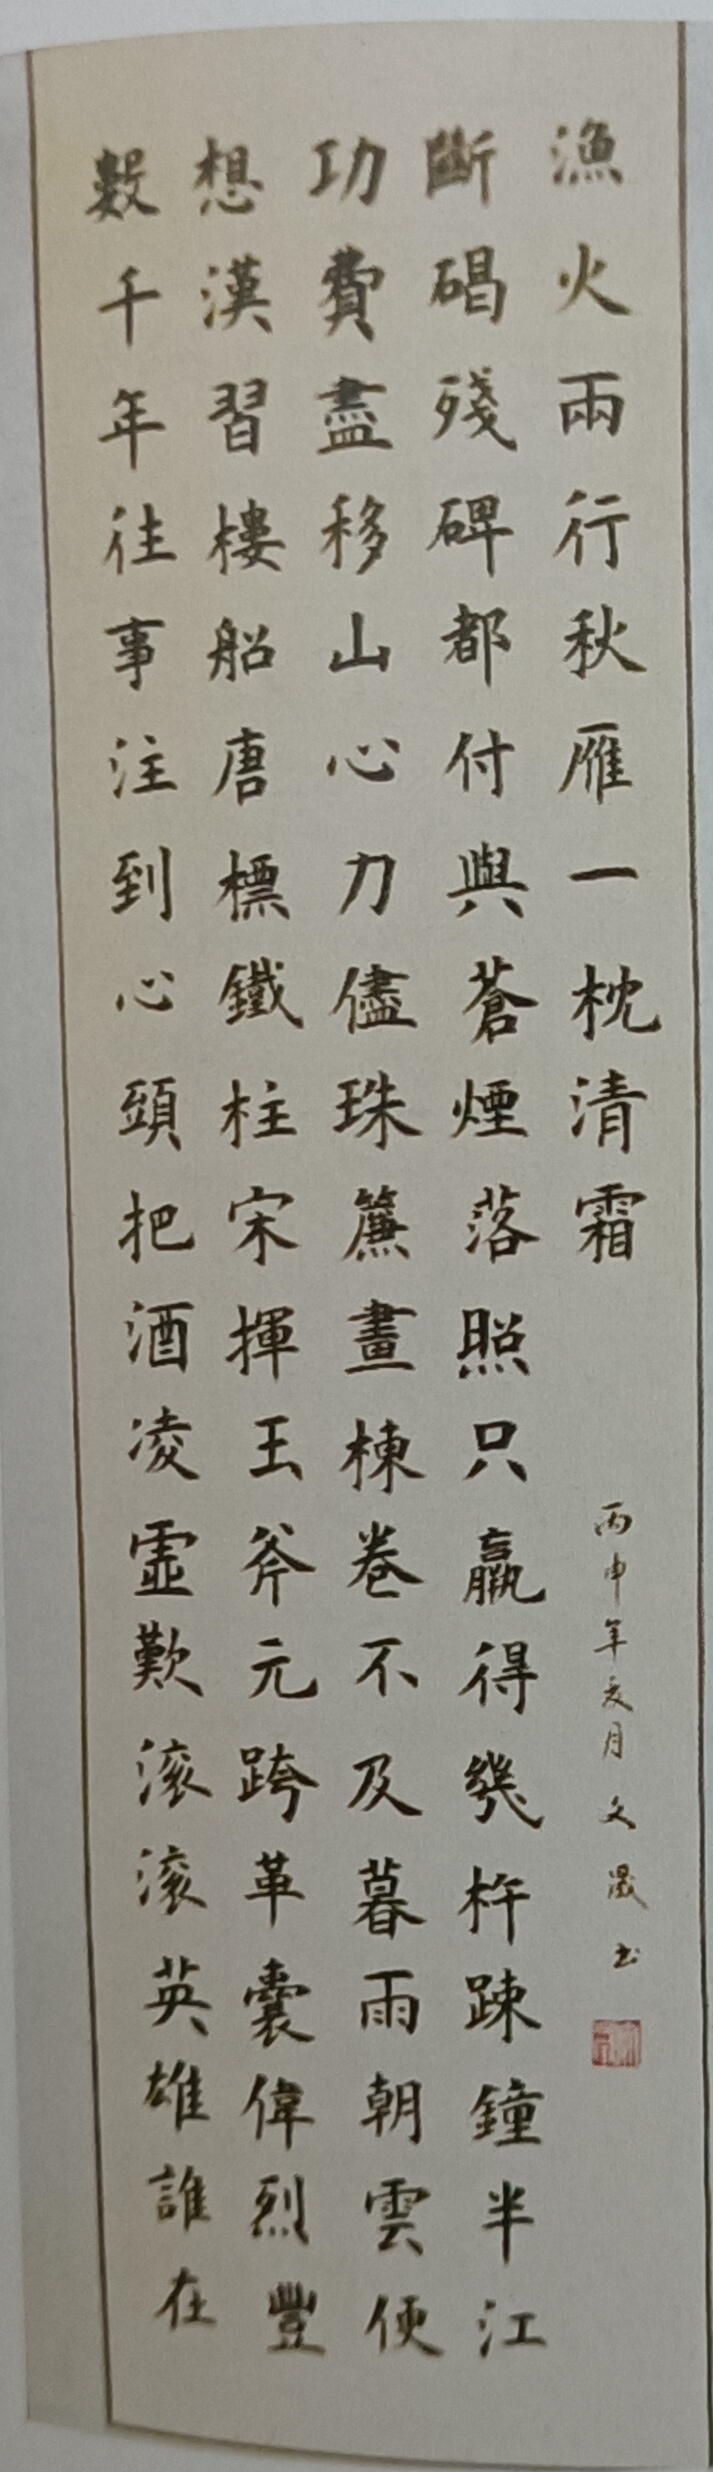 數千年往事注到心頭把酒凌虛歎滚滚英雄誰在
想漢習樓船唐標鐵柱宋揮玉斧元跨革囊偉烈豐
功費盡移山心力儘珠簾畫棟卷不及暮雨朝雲便
斷碣殘碑都付與蒼煙落照只贏得幾杵踈鐘半江
漁火兩行秋雁一枕清霜
丙申年夏月文書